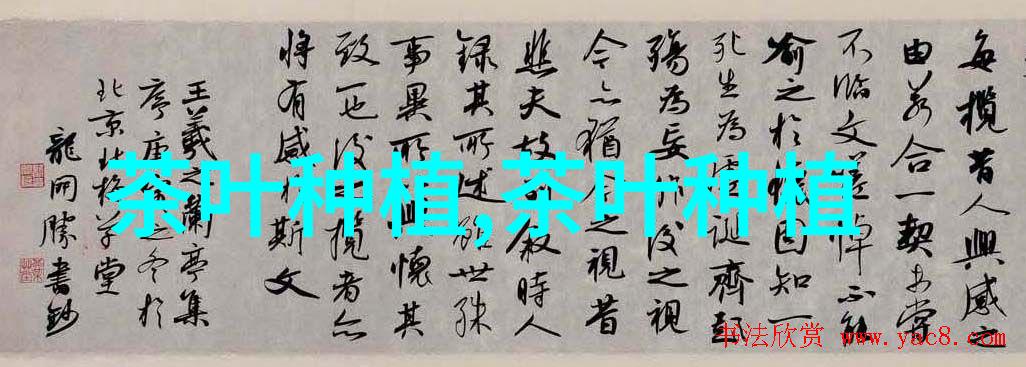 每攬昔人興感之
由若合一契未嘗
不臨文嗟悼不能
喻之於懷固知一
死生為虛誕齊彭
殤為妄作後之視
今亦猶今之視昔
悲夫故列敘時人
錄其所述雖世殊
事異所以興懷其
致一也後之攬者亦
將有感於斯文
王羲之蘭亭集
序庚之冬於
北京北草堂
龍開勝書鈔
茶叶种植,茶叶种植
书法欣赏 www.yac8.com